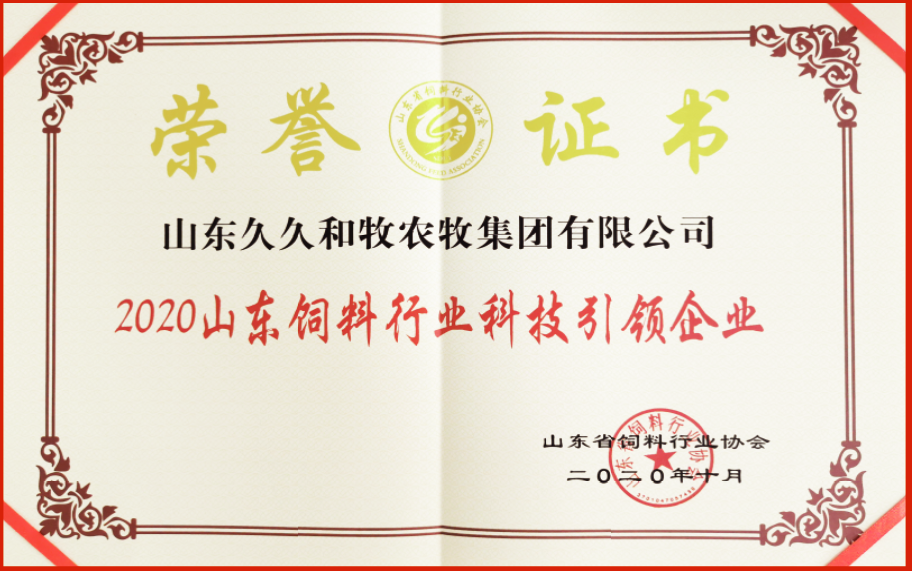 荣誉证书
山东省饲料行业协会
SHANDONG FEED ASSOCIATION
山东久久和牧农牧集团有限公司
2020山东饲料行业科技引领企业
山东省饲料行业协会
二〇二〇年十月
山东省饲料行业协会